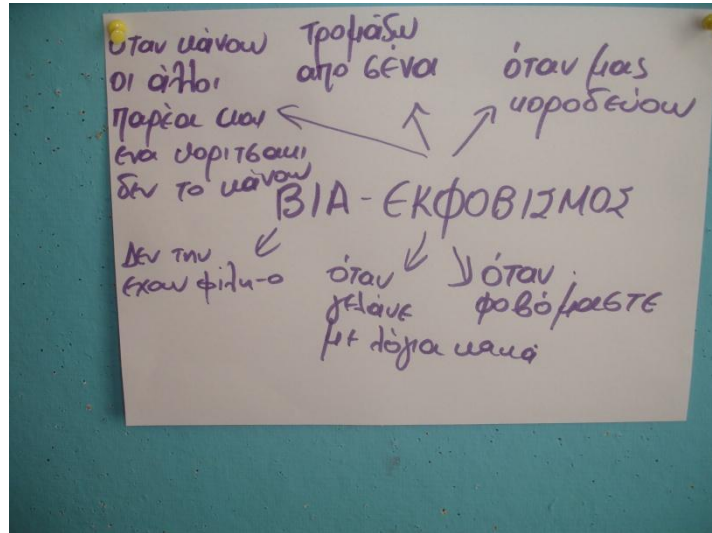 όταν κάνουν
οι άλλοι
παρέα και
ένα κοριτσακι
δεν το κάνουν
τρομάζω
από σένα
όταν μας
κοροδεύουν
ΒΙΑ - ΕΚΦΟΒΙΣΜΟΣ
Δεν την
έχουν φίλη-ο
όταν
γελάνε
με λόγια κακά
όταν
φοβόμαστε